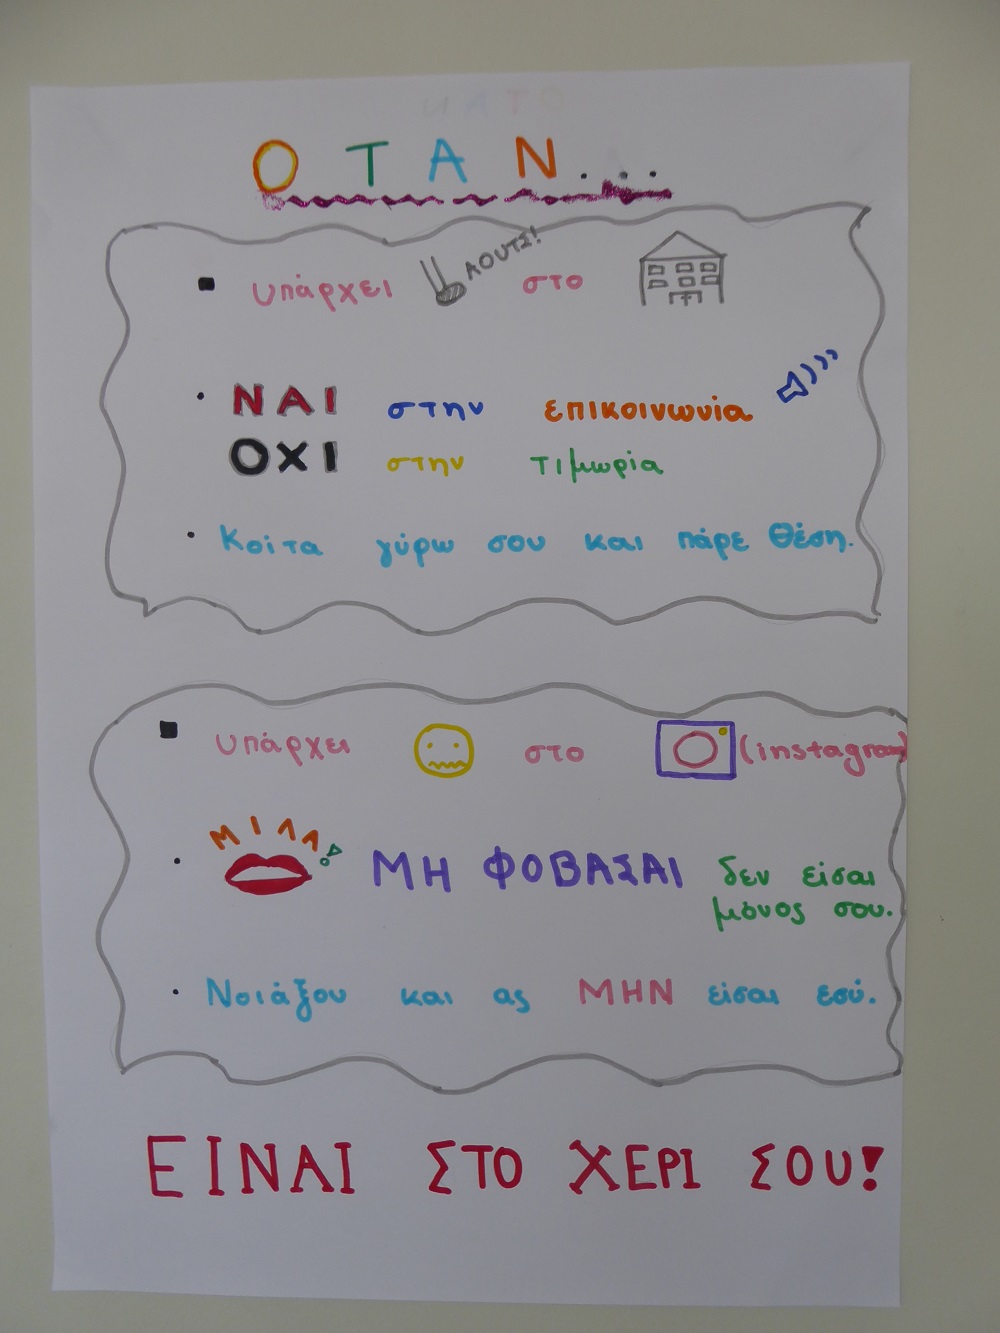 ΟΤΑΝ...
υπάρχει ΑΟΥΤΣ! στο
ΝΑΙ στην επικοινωνία
ΟΧΙ στην τιμωρία
Κοίτα γύρω σου και πάρε θέση.
υπάρχει στο (instagram)
ΜΙΛΑ! ΜΗ ΦΟΒΑΣΑΙ δεν είσαι
μόνος σου.
Νοιάξου και ας ΜΗΝ είσαι εσύ.
ΕΙΝΑΙ ΣΤΟ ΧΕΡΙ ΣΟΥ!